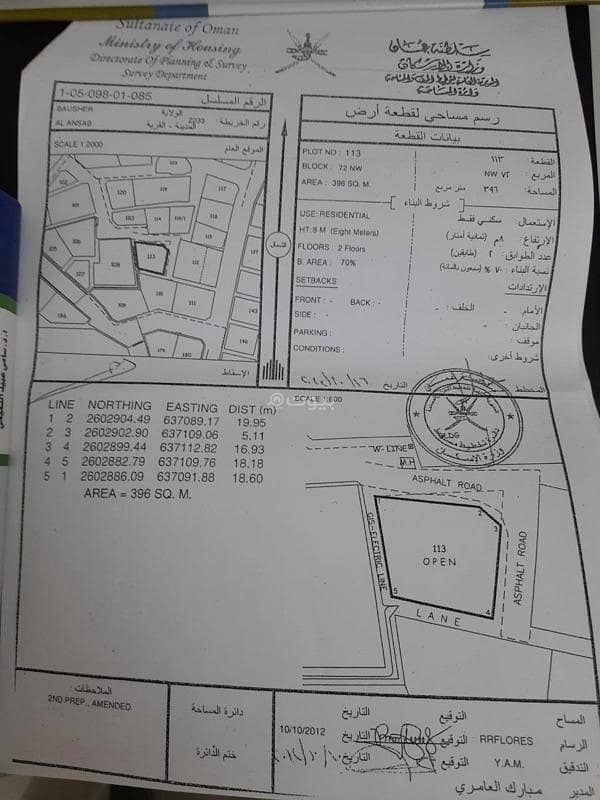 Sultanate of Oman
Ministry of Housing
Directorate of Planning & Survey
Survey Department
سلطنة عمان
وزارة الإسكان
دائرة المساحة
1-05-098-01-085
الرقم المسلسل
BAUSHER
الولاية
2233
رقم الخريطة
AL ANSAB
المدينة - القرية
SCALE 1:2000
الموقع العام
الشمال
الإسقاط
رسم مساحي لقطعة أرض
بيانات القطعة
PLOT NO : 113
القطعة : ١١٣
BLOCK : 72 NW
المربع : NW ٧٢
AREA : 396 SQ. M.
المساحة: ٣٩٦ متر مربع
شروط البناء
USE: RESIDENTIAL
الإستعمال: سكني فقط
HT: 8 M (Eight Meters)
الإرتفاع: ٨م (ثمانية أمتار)
FLOORS : 2 Floors
عدد الطوابق: ٢ (طابقين)
B. AREA : 70%
نسبة البناء: ٧٠ % (سبعون بالمائة)
SETBACKS
الإرتدادات
FRONT : - BACK : -
الأمام: - الخلف: -
SIDE : -
الجانبان: -
PARKING :
موقف:
CONDITIONS :
شروط أخرى:
التاريخ
المخطط
SCALE 1:600
LINE NORTHING EASTING DIST (m)
1 2 2602904.49 637089.17 19.95
2 3 2602902.90 637109.06 5.11
3 4 2602899.44 637112.82 16.93
4 5 2602882.79 637109.76 18.18
5 1 2602886.09 637091.88 18.60
AREA = 396 SQ. M.
بيوت
W-LINE
M.H
ASPHALT ROAD
1
2
3
113
OPEN
GIS-ELECTRIC LINE
ASPHALT ROAD
5
4
LANE
الملاحظات:
2ND PREP., AMENDED
دائرة المساحة
ختم الدائرة
المساح التوقيع التاريخ
الرسام RRFLORES التوقيع التاريخ 10/10/2012
التدقيق Y.A.M. التوقيع التاريخ
المدير مبارك العامري